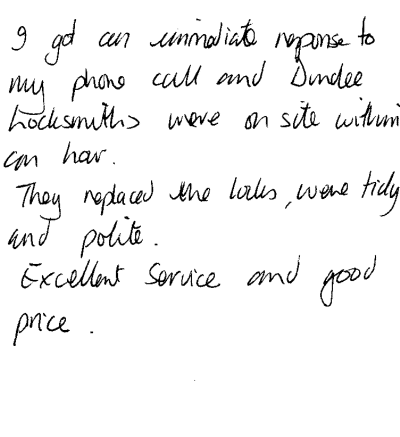 I got an immediate response to
my phone call and Dundee
Locksmiths were on site within
an hour.
They replaced the locks, were tidy
and polite.
Excellent Service and good
price.